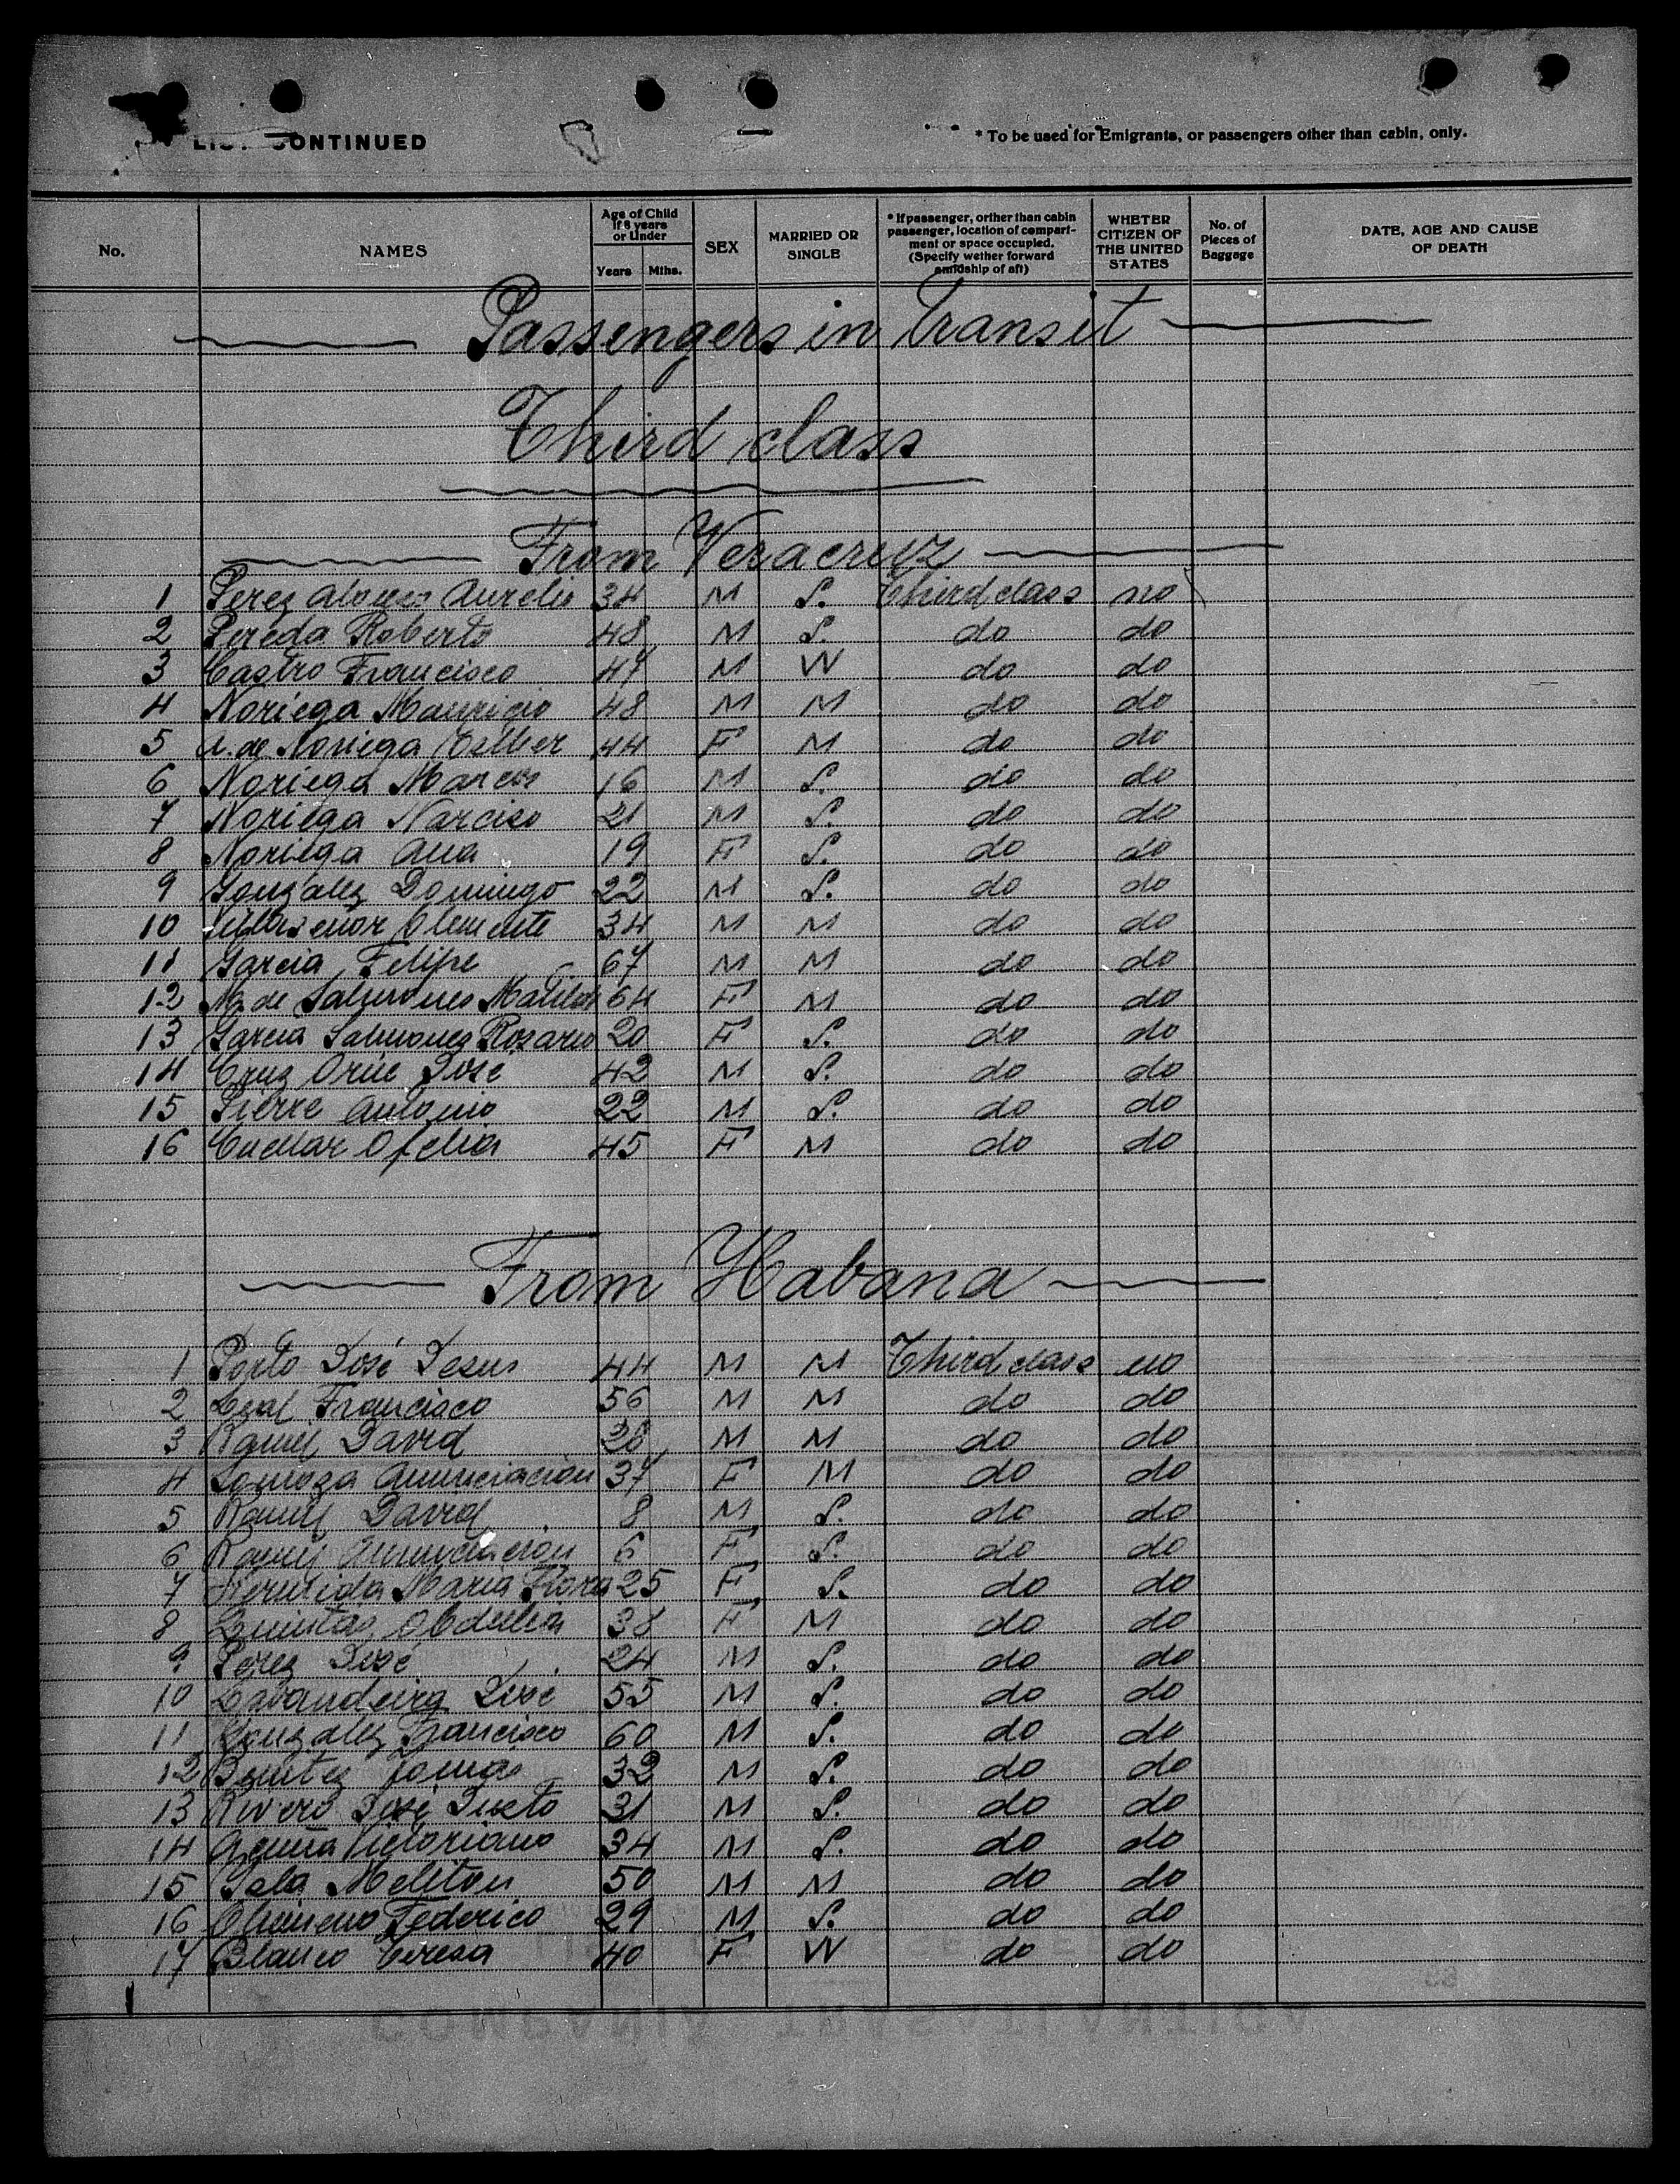 LIST CONTINUED
* To be used for Emigrants, or passengers other than cabin, only.
No.
NAMES
Age of Child
If 8 years
or Under
Years Mths.
SEX
MARRIED OR
SINGLE
* If passenger, orther than cabin
passenger, location of compart-
ment or space occupied.
(Specify wether forward
amidship of aft)
WHETER
CITIZEN OF
THE UNITED
STATES
No. of
Pieces of
Baggage
DATE, AGE AND CAUSE
OF DEATH
Passengers in transit
Third class
From Veracruz
1 Perez Alonso Aurelio 34 M S. Third class no
2 Pereda Roberto 48 M S. do do
3 Castro Francisco 47 M W do do
4 Noriega Mauricio 48 M M do do
5 A. de Noriega Esther 44 F M do do
6 Noriega Marcos 16 M S. do do
7 Noriega Narciso 21 M S. do do
8 Noriega Ana 19 F S. do do
9 González Domingo 22 M S. do do
10 Clemente 34 M M do do
11 Garcia Felipe 67 M M do do
12 de Salmones 64 F M do do
13 Garcia Salmones Rosario 20 F S. do do
14 Cruz José 42 M S. do do
15 Pierre Antonio 22 M S. do do
16 Cuellar Ofelia 45 F M do do
From Habana
1 Porto José Jesus 44 M M Third class no
2 Leal Francisco 56 M M do do
3 David 28 M M do do
4 Somoza Anunciacion 37 F M do do
5 David 8 M S. do do
6 Anunciacion 6 F S. do do
7 Hermida Maria Flora 25 F S. do do
8 Quintas Obdulia 38 F M do do
9 Perez José 24 M S. do do
10 Lavandeira José 55 M S. do do
11 Gonzalez Francisco 60 M S. do do
12 Benitez Tomas 32 M S. do do
13 Rivero José Justo 31 M S. do do
14 Victoriano 34 M S. do do
15 Meliton 50 M M do do
16 Federico 29 M S. do do
17 Blanco Teresa 40 F W do do